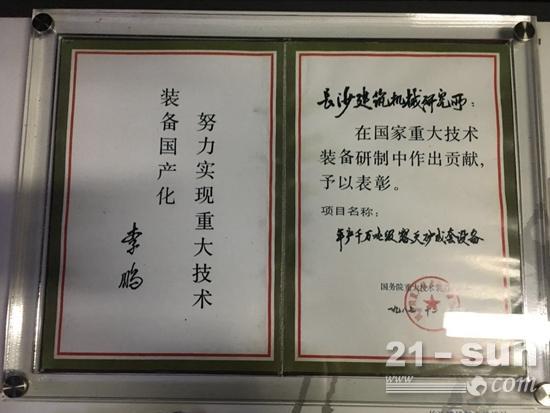 努力实现重大技术
装备国产化
李鹏
长沙建筑机械研究所：
在国家重大技术
装备研制中作出贡献，
予以表彰。
项目名称：
年产千万吨级露天矿成套设备
国务院重大技术装
一九八七
21-sun
.com